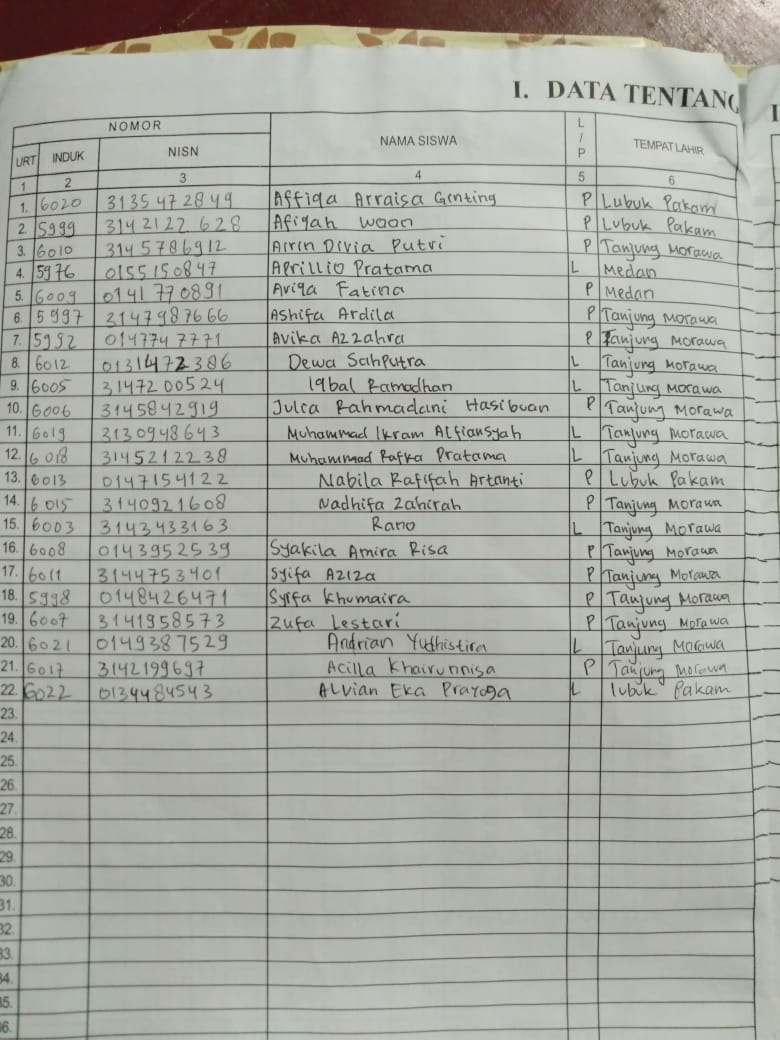 I. DATA TENTANG
NOMOR
NAMA SISWA
L / P
TEMPAT LAHIR
URT INDUK NISN
1 2 3 4 5 6
1. 6020 3135472849 Affiqa Arraisa Ginting P Lubuk Pakam
2. 5999 3142122628 Afiqah Woon P Lubuk Pakam
3. 6010 3145786912 Airin Divia Putri P Tanjung Morawa
4. 5976 0155150847 Aprillio Pratama L Medan
5. 6009 0141770891 Ariqa Fatina P Medan
6. 5997 3147987666 Ashifa Ardila P Tanjung Morawa
7. 5992 0147747771 Avika Azzahra P Tanjung Morawa
8. 6012 0131472386 Dewa Sahputra L Tanjung Morawa
9. 6005 3147200524 Iqbal Ramadhan L Tanjung Morawa
10. 6006 3145842919 Julia Rahmadani Hasibuan P Tanjung Morawa
11. 6019 3130948643 Muhammad Ikram Alfiansyah L Tanjung Morawa
12. 6018 3145212238 Muhammad Rafka Pratama L Tanjung Morawa
13. 6013 0147154122 Nabila Rafifah Artanti P Lubuk Pakam
14. 6015 3140921608 Nadhifa Zahirah P Tanjung Morawa
15. 6003 3143433163 Rano L Tanjung Morawa
16. 6008 0143952539 Syakila Amira Risa P Tanjung Morawa
17. 6011 3144753401 Syifa Aziza P Tanjung Morawa
18. 5998 0148426471 Syifa Khumaira P Tanjung Morawa
19. 6007 3141958573 Zufa Lestari P Tanjung Morawa
20. 6021 0149387529 Andrian Yudhistira L Tanjung Morawa
21. 6017 3142199697 Acilla Khairunnisa P Tanjung Morawa
22. 6022 0134484543 Alvian Eka Prayoga L lubuk Pakam
23.
24.
25.
26.
27.
28.
29.
30.
31.
32.
33.
34.
35.
36.